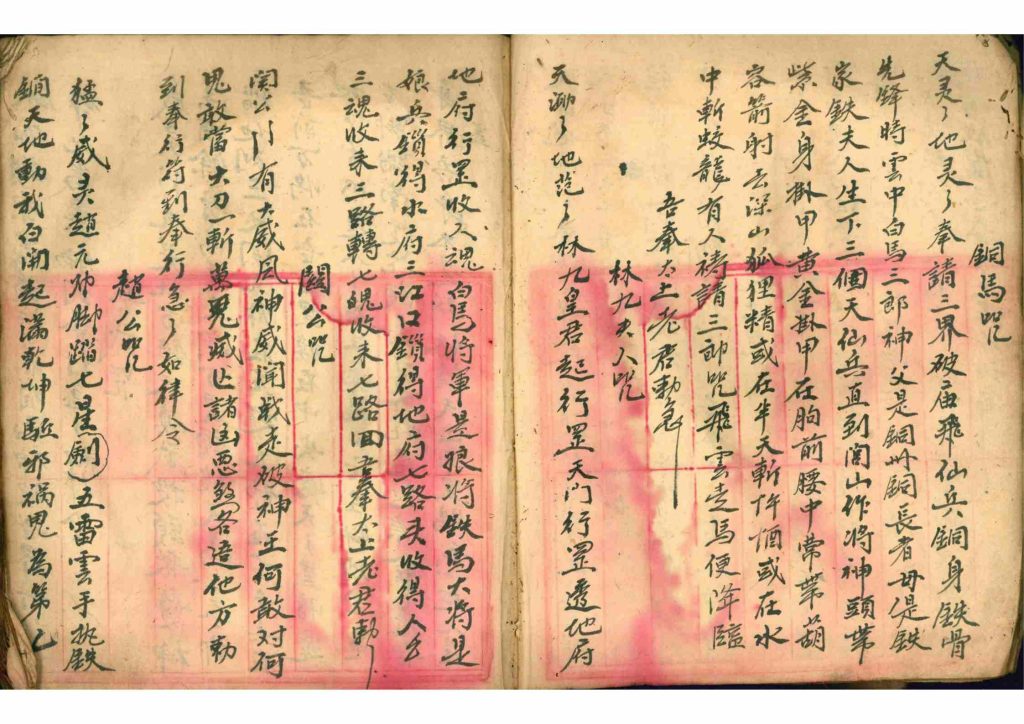 銅馬咒
天灵〻地灵〻奉請三界破庙飛仙兵銅身鉄骨
先鋒時雲中白馬三郎神父是銅州銅長者母是鉄
家鉄夫人生下三個天仙兵直到閭山作將神頭帶
紫金身掛甲黄金掛甲在胸前腰中常带葫
容箭射去深山狐狸精或在半天斬 或在水
中斬蛟龍有人祷請三郎咒飛雲走馬便降臨
吾奉太上老君勅急
林九夫人咒
天 〻地 〻林九皇君起行罡天門行罡透地府
地府行罡收人魂白馬将軍是狼将鉄馬大将是
娘兵鎖得水府三江口鎖得地府七路头收得人生
三魂收来三路轉七魄收来七路回吾奉太上老君勅
關公咒
関公〻有大威風神威開戦走破神王何敢对何
鬼敢當大刀一斬萬鬼滅亡諸凶惡煞各逵他方勅
到奉行符到奉行急〻如律令
趙公咒
猛〻威灵趙元帅脚踏七星劍五雷雲手执鉄
鐗天地動我白開起满乾坤駈邪禍鬼為第乙